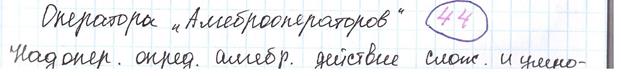 Оператора „Алгеброоператоров“ 44
Над опер. опред. алгебр. действие слож. и умно-